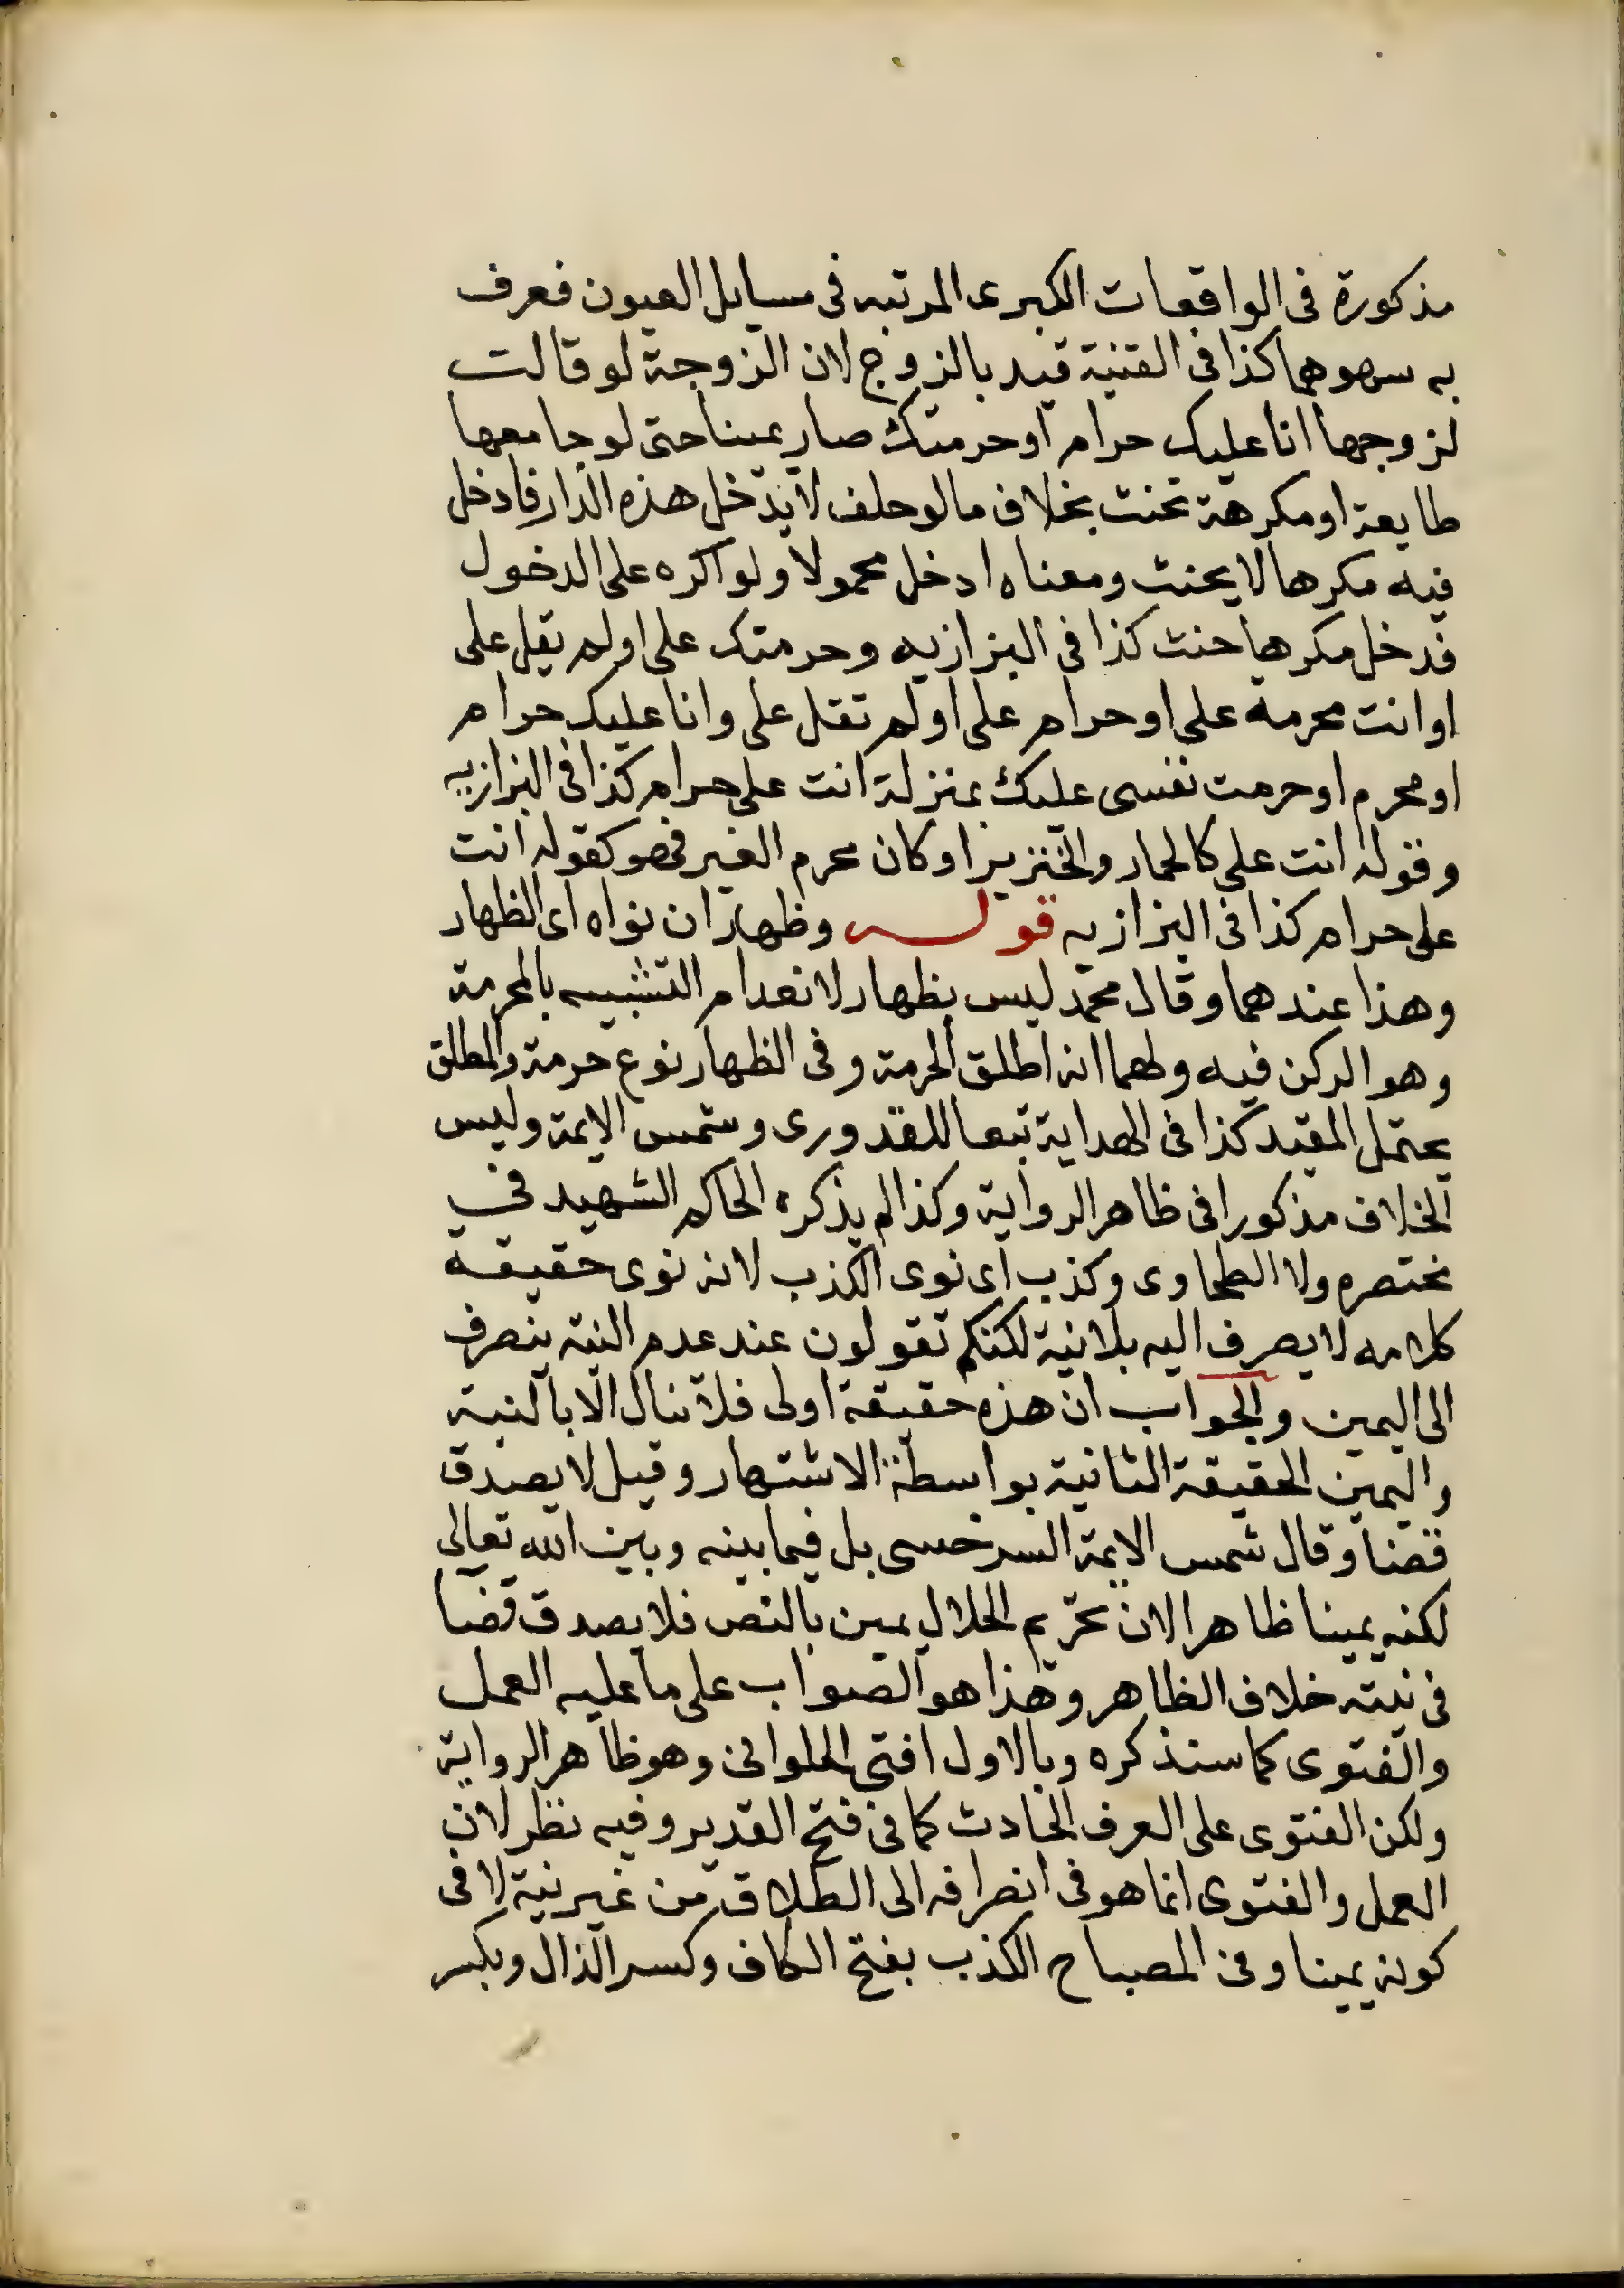 مذكورة فى الواقعات الكبرى المرتبه فى مسايل العيون فعرف
به سهوهما كذا فى القنية قيد بالزوج لان الزوجة لو قالت
لزوجها انا عليك حرام او حرمتك صار يمينا حتى لو جامعها
طايعة او مكرهة تحنث بخلاف ما لو حلف لا يدخل هذه الدار فادخل
فيه مكرها لا يحنث ومعناه ادخل محمولا ولو اكره على الدخول
فدخل مكرها حنث كذا فى البزازيه وحرمتك على اولم يقل على
او انت محرمة على او حرام على اولم تقل على وانا عليك حرام
او محرم او حرمت نفسى عليك بمنزلة انت على حرام كذا فى البزازيه
وقوله انت على كالحمار والخنزير او كان محرم العير فهو كقوله انت
على حرام كذا فى البزازيه قوله وظهار ان نواه اى الظهار
وهذا عندهما وقال محمد ليس بظهار لانعدام التشبيه بالمحرمة
وهو الركن فيه ولهما انه اطلق الحرمة وفى الظهار نوع حرمة والمطلق
يحتمل المقيد كذا فى الهداية تبعا للقدورى وشمس الايمة وليس
الخلاف مذكورا فى ظاهر الرواية وكذا لم يذكره الحاكم الشهيد في
مختصره ولا الطحاوى وكذب اى نوى الكذب لانه نوى حقيقة
كلامه لا يصرف اليه بلانية لكنكم تقولون عند عدم النية ينصرف
الى اليمين والجواب ان هذه حقيقة اولى فلا تنال الا بالنية
واليمين الحقيقة الثانية بواسطة الاشتهار وقيل لا يصدق
قضا وقال شمس الايمة السرخسى بل فيما بينه وبين الله تعالى
لكنه يمينا ظاهرا لان تحريم الحلال يمين بالنص فلا يصدق قضا
فى نيته خلاف الظاهر وهذا هو الصواب على ما عليه العمل
والفتوى كما سنذكره وبالاول افتى الحلوانى وهو ظاهر الرواية
ولكن الفتوى على العرف الحادث كما فى فتح القدير وفيه نظر لان
العمل والفتوى انما هو فى انصرافه الى الطلاق من غير نية لا فى
كونه يمينا وفى المصباح الكذب بفتح الكاف وكسر الذال وبكسر